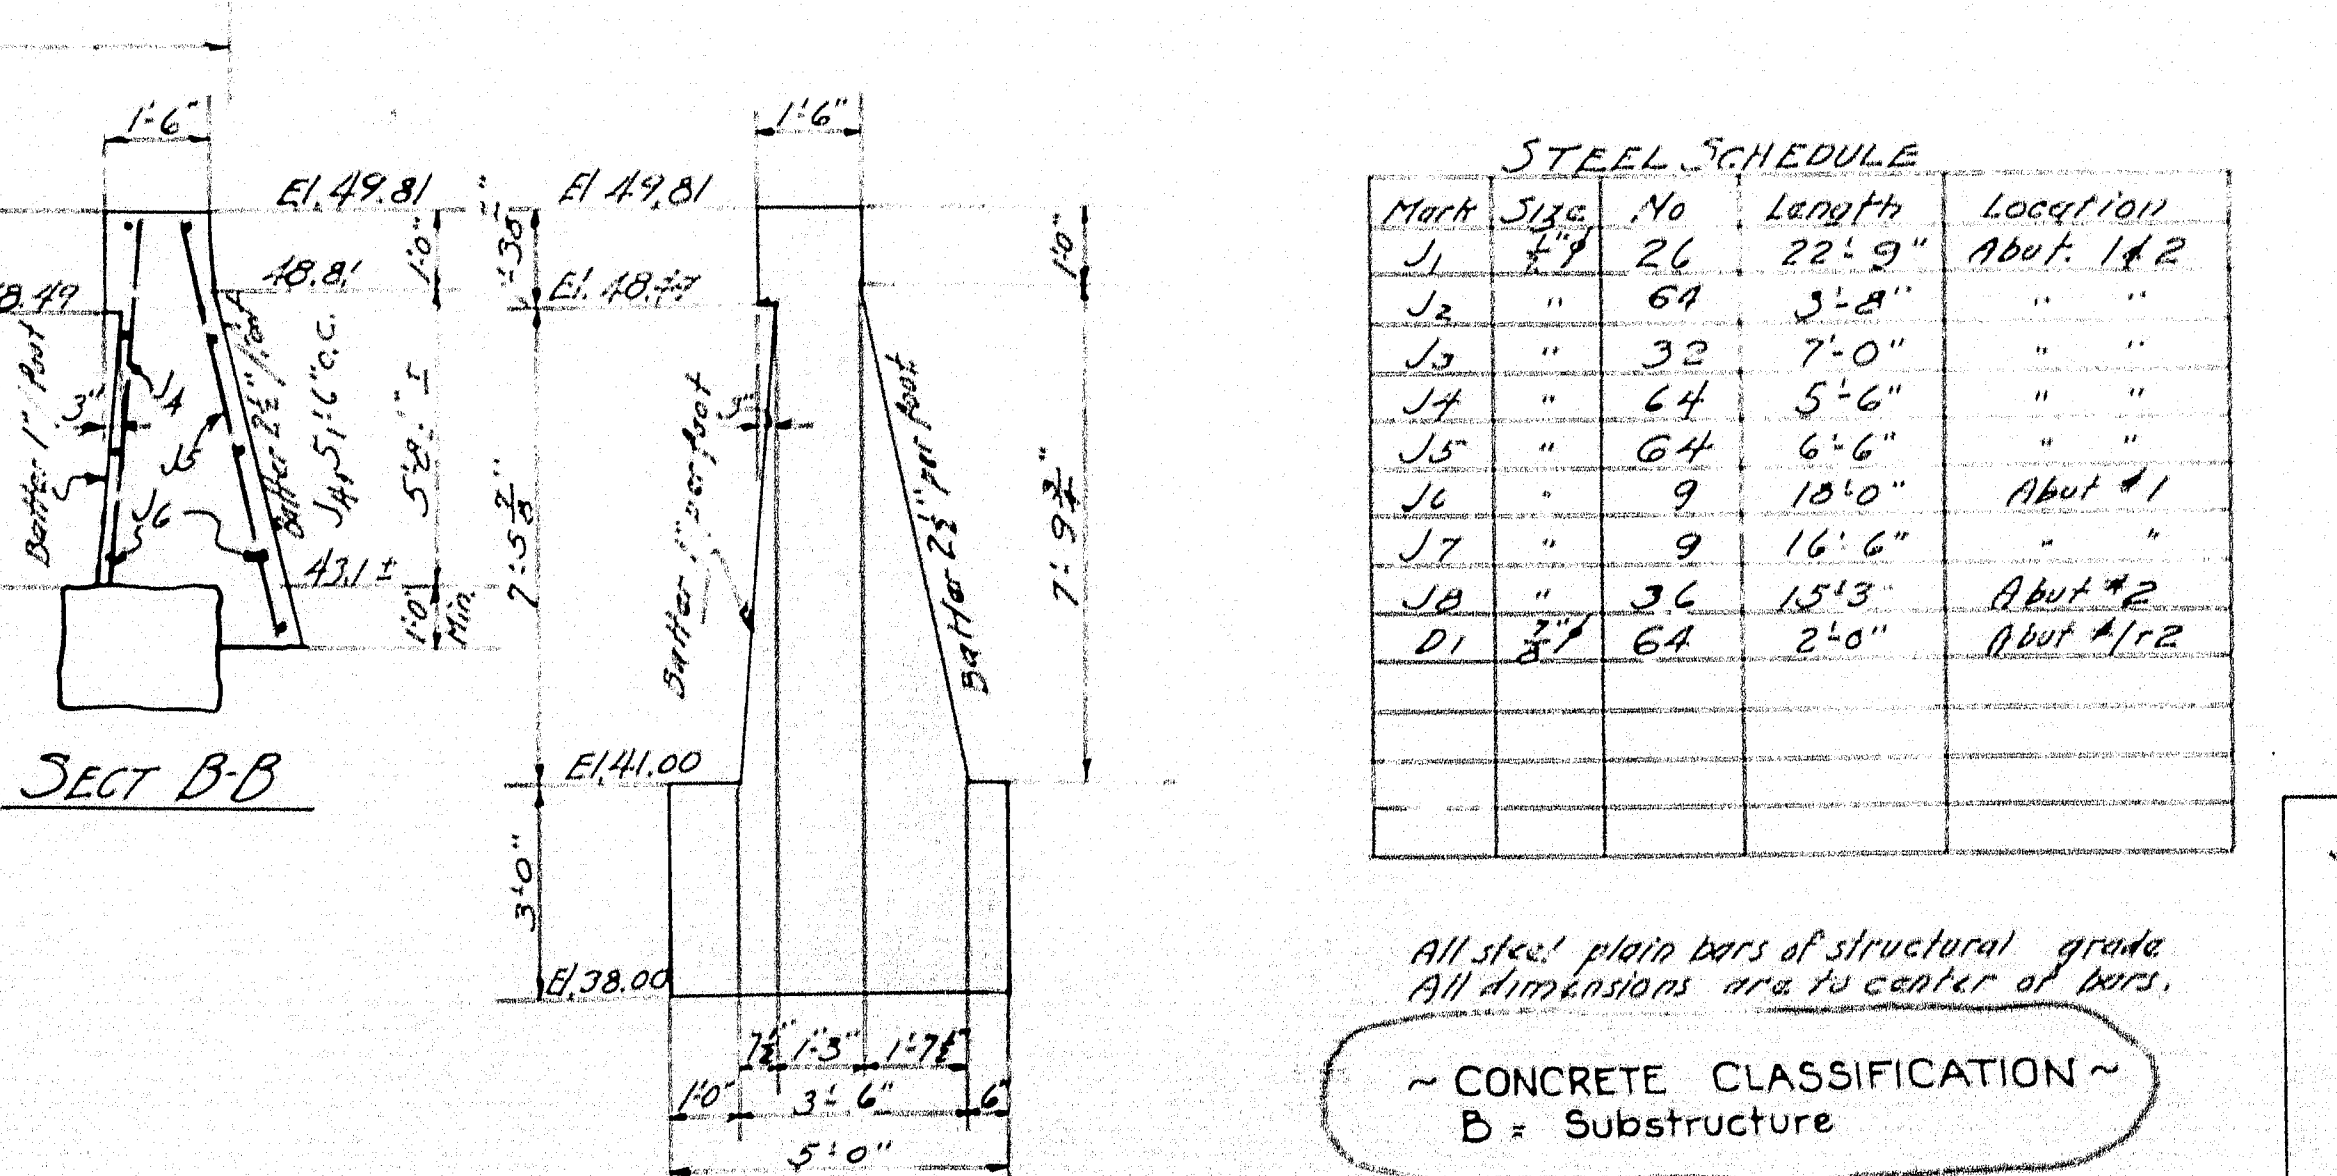 1'-6"
El. 49.81
48.81
1'-0"
8.49
Batter 1" / Foot
3"
J4
J5
J6
Batter 2½" / Foot
J4 & 5 1'-6" o.c.
5'-8" ±
43.1 ±
1'-0"
Min.
SECT B-B
1'-6"
El 49.81
El. 48.47
1'-0"
7'-5 7/8"
3'-0"
3"
Batter 1" per foot
Batter 2½" per foot
7'-9 3/4"
El. 41.00
El. 38.00
7½" 1'-3" 1'-7½"
1'-0" 3'-6" 6"
5'-0"
STEEL SCHEDULE
Mark Size No Length Location
J1 ½"φ 26 22'-9" Abut. 1 & 2
J2 " 64 3'-8" " "
J3 " 32 7'-0" " "
J4 " 64 5'-6" " "
J5 " 64 6'-6" " "
J6 " 9 18'-0" Abut #1
J7 " 9 16'-6" " "
J8 " 36 15'-3" Abut #2
D1 7/8"φ 64 2'-0" Abut #1 & 2
All steel plain bars of structural grade
All dimensions are to center of bars.
~ CONCRETE CLASSIFICATION ~
B = Substructure